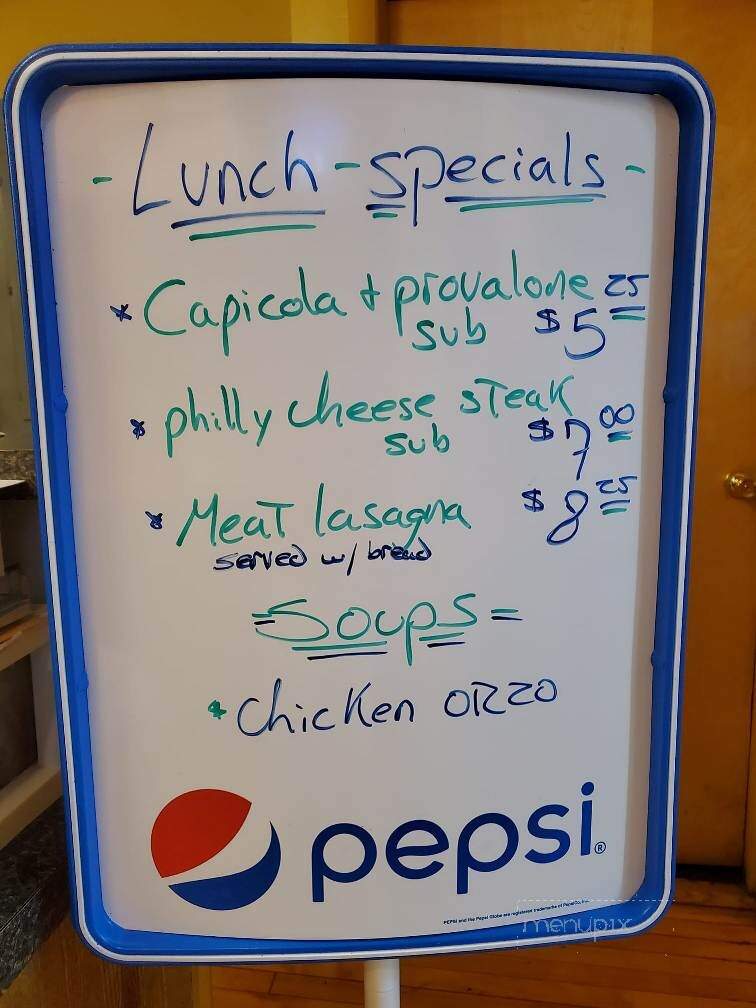 - Lunch - specials -
* Capicola + provalone
sub $5 25
* philly cheese steak
sub $7 00
* Meat lasagna $8 25
served w/ bread
= Soups =
* Chicken orzo
pepsi®
PEPSI and the Pepsi Globe are registered trademarks of PepsiCo, Inc.
menupix